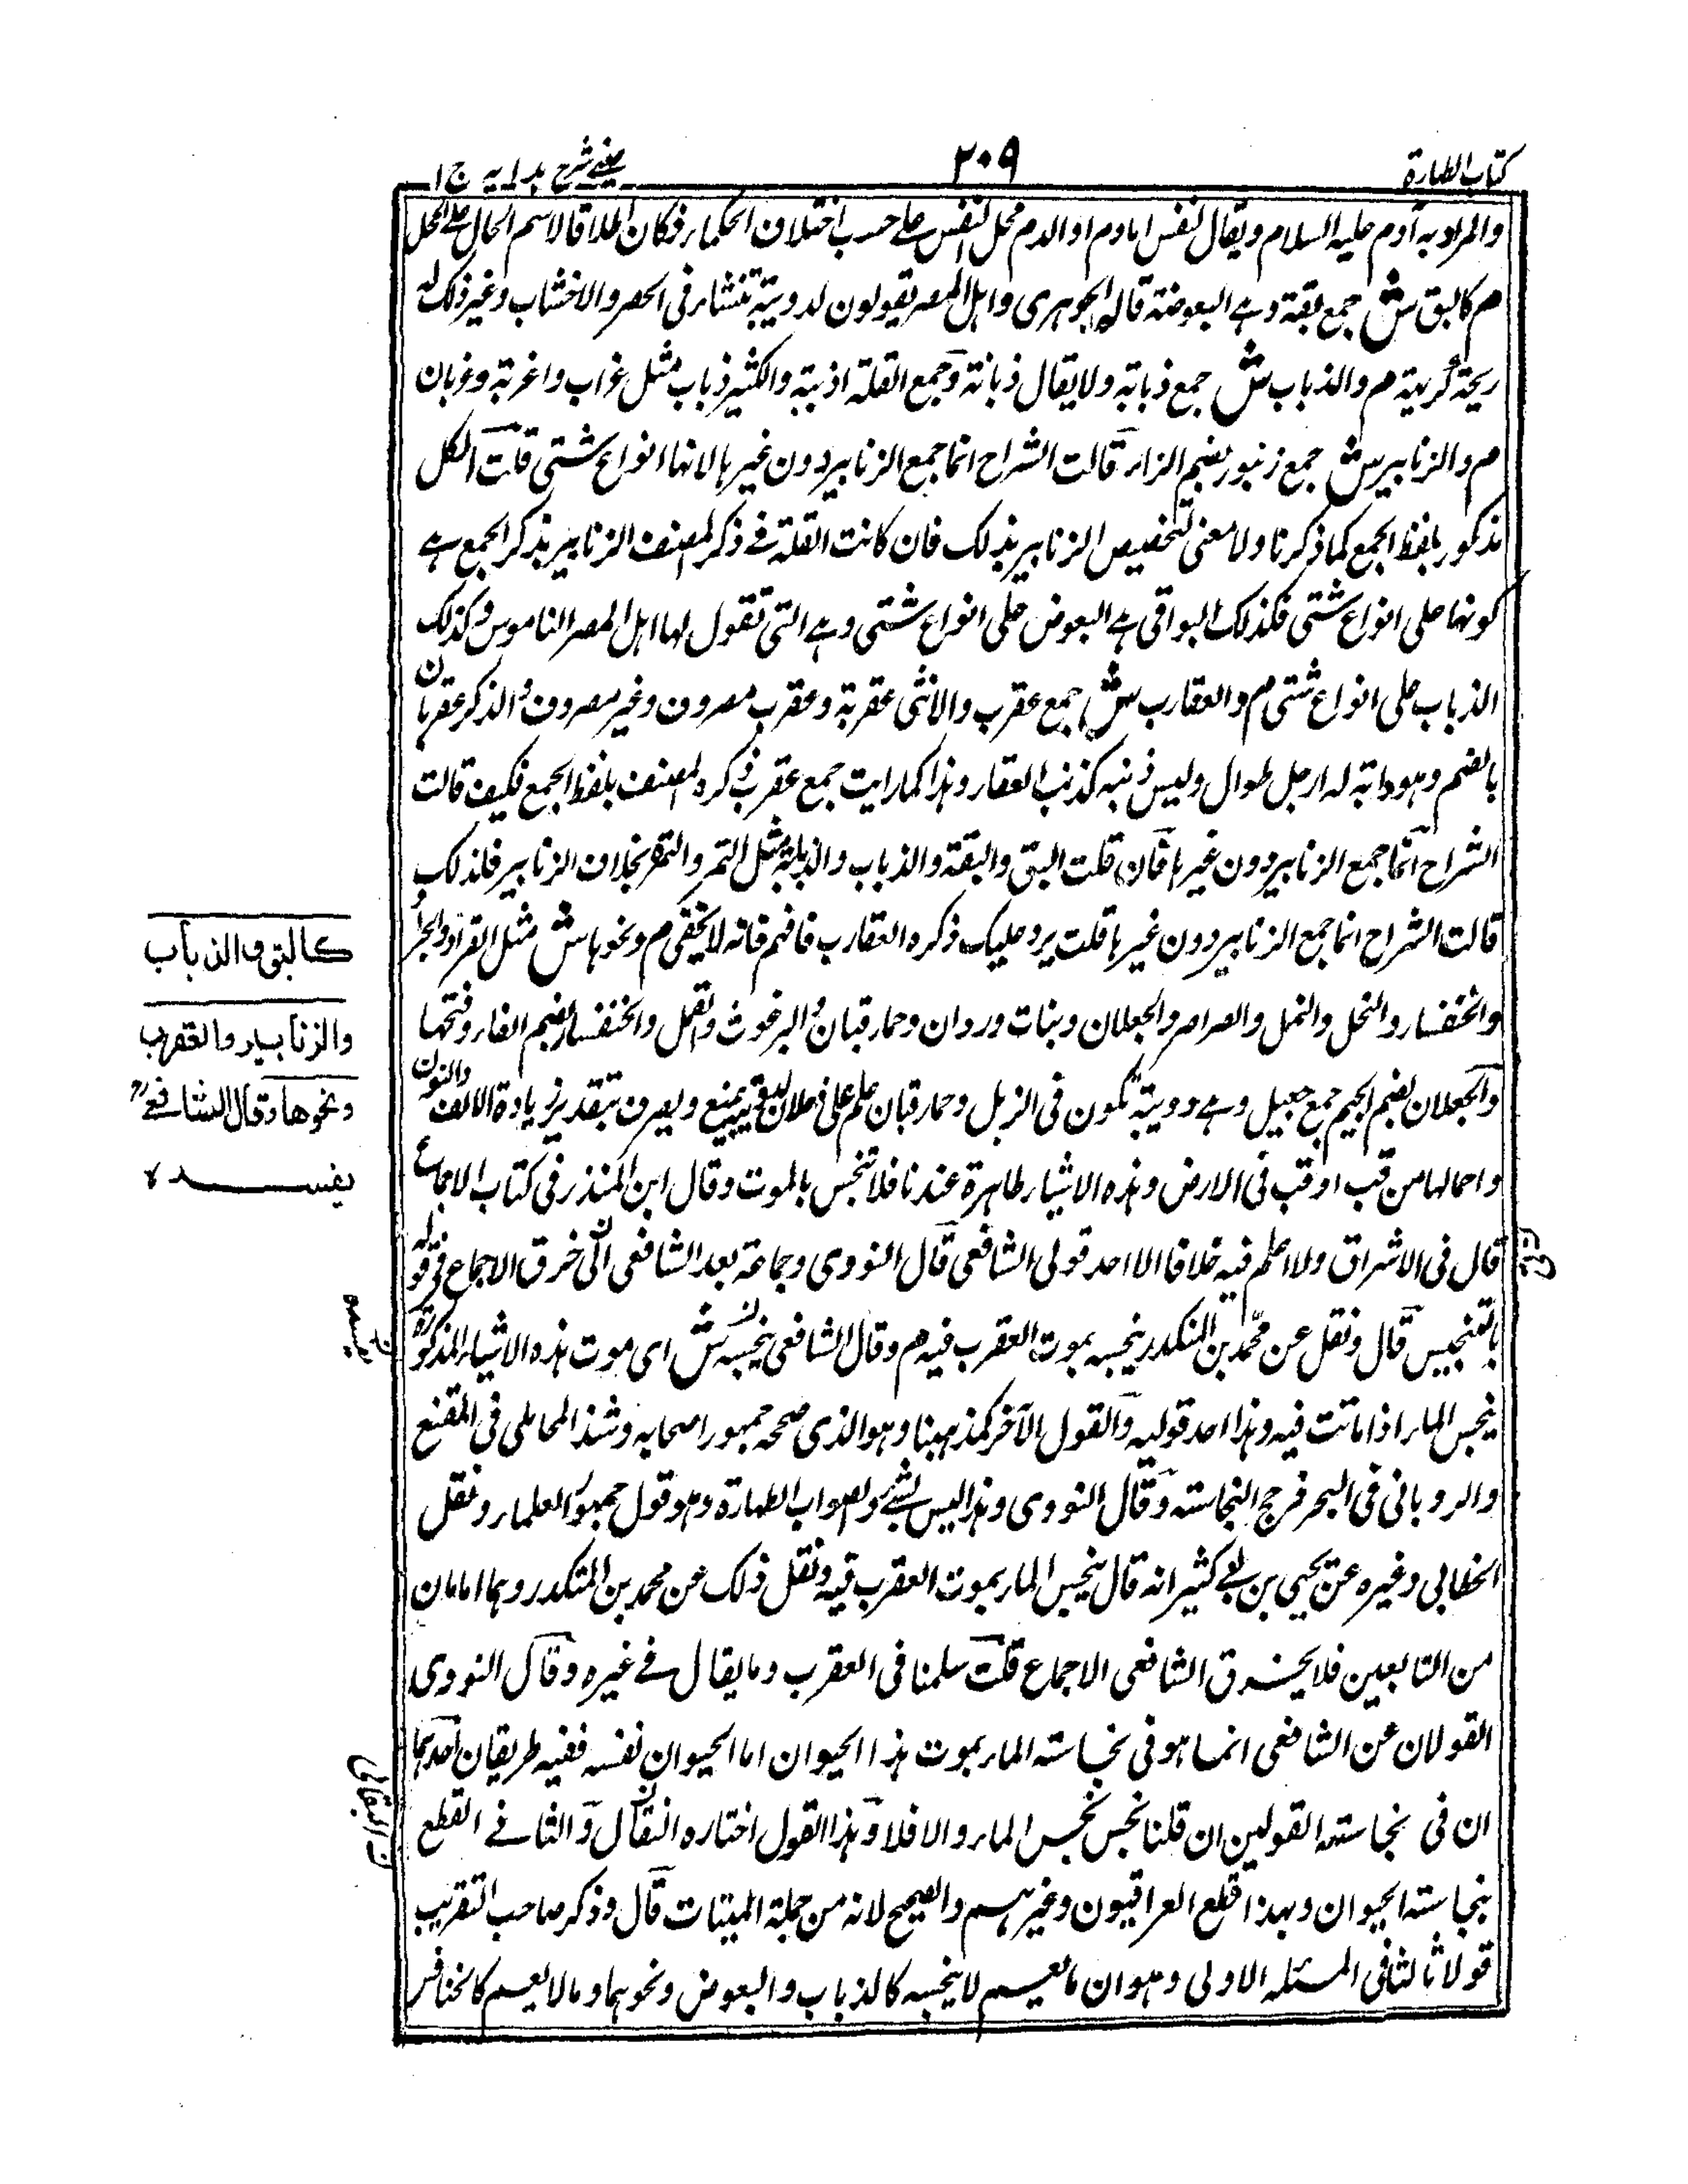 كتاب الطهارة
٢٠٩
عيني شرح هدايه ج ١
والمراد به آدم عليه السلام ويقال النفس اما دم او الدم محل النفس على حسب اختلاف الحكماء فكان اطلاقا لاسم الحال على المحل
م كالبق ش جمع بقة وهي البعوضة قاله الجوهري واهل المصر يقولون لدويبة تنشاء في الحصر والاخشاب وغير ذلك له
ريحة كريهة م والذباب ش جمع ذبابة ولا يقال ذبانة وجمع القلة اذبة والكثير ذباب مثل غراب واغربة وغربان
م والزنابير ش جمع زنبور بضم الزاء قالت الشراح انما جمع الزنابير دون غيرها لانها انواع شتى قلت الكل
مذكور بلفظ الجمع كما ذكرنا ولا معنى لتخصيص الزنابير بذلك فان كانت القلة في ذكر المصنف الزنابير بذكر الجمع هي
كونها على انواع شتى فكذلك البواقي هي البعوض على انواع شتى وهي التي تقول لها اهل المصر الناموس وكذلك
الذباب على انواع شتى م والعقارب ش جمع عقرب والانثى عقربة وعقرب مصروف وغير مصروف والذكر عقربان
بالضم وهو دابة له ارجل طوال وليس ذنبه كذنب العقار وهذا كما رايت جمع عقرب ذكره المصنف بلفظ الجمع فكيف قالت
الشراح انما جمع الزنابير دون غيرها فان قلت البق والبقة والذباب والذبابة مثل التمر والتمرة بخلاف الزنابير فلذلك
قالت الشراح انما جمع الزنابير دون غيرها قلت يرد عليك ذكره العقارب فافهم فانه لا يخفى م ونحوها ش مثل القراد والجراد
والخنفساء والنحل والنمل والصراصر والجعلان وبنات وردان وحمار قبان والبرغوث والقمل والخنفساء بضم الفاء وفتحها
والجعلان بضم الجيم جمع جعيل وهي دويبة تكون في الزبل وحمار قبان علم على فعلان يمنع ويصرف بتقدير زيادة الالف والنون
واصالها من قب او قب في الارض وهذه الاشياء طاهرة عندنا فلا تنجس بالموت وقال ابن المنذر في كتاب الاجماع
قال في الاشراق ولا اعلم فيه خلافا الا احد قولي الشافعي قال النووي وجماعة بعد الشافعي انه خرق الاجماع في قوله
بالتنجيس قال ونقل عن محمد بن المنكدر ينجسه بموت العقرب فيه م وقال الشافعي ينجسه ش اي موت هذه الاشياء المذكورة
ينجس الماء اذا ماتت فيه وهذا احد قوليه والقول الآخر كمذهبنا وهو الذي صححه جمهور اصحابه وشذ المحاملي في المقنع
والروياني في البحر فرجح النجاسة وقال النووي وهذا ليس بشئ والصواب الطهارة وهو قول جمهور العلماء ونقل
الخطابي وغيره عن يحيي بن ابي كثير انه قال ينجس الماء بموت العقرب فيه ونقل ذلك عن محمد بن المنكدر وهما امامان
من التابعين فلا يخرق الشافعي الاجماع قلت سلمنا في العقرب وما يقال في غيره وقال النووي
القولان عن الشافعي انما هو في نجاسة الماء بموت هذا الحيوان اما الحيوان نفسه ففيه طريقان احدهما
ان في نجاسته القولين ان قلنا نجس نجس الماء والا فلا وهذا القول اختاره القفال والثاني القطع
بنجاسة الحيوان وبهذا قطع العراقيون وغيرهم والصحيح لانه من جملة الميتات قال وذكر صاحب التقريب
قولا ثالثا في المسئلة الاولى وهو ان ما يعم لا ينجسه كالذباب والبعوض ونحوهما وما لا يعم كالخنافس
كالبق والذباب
والزنابير والعقرب
ونحوها وقال الشافعي
يفسده